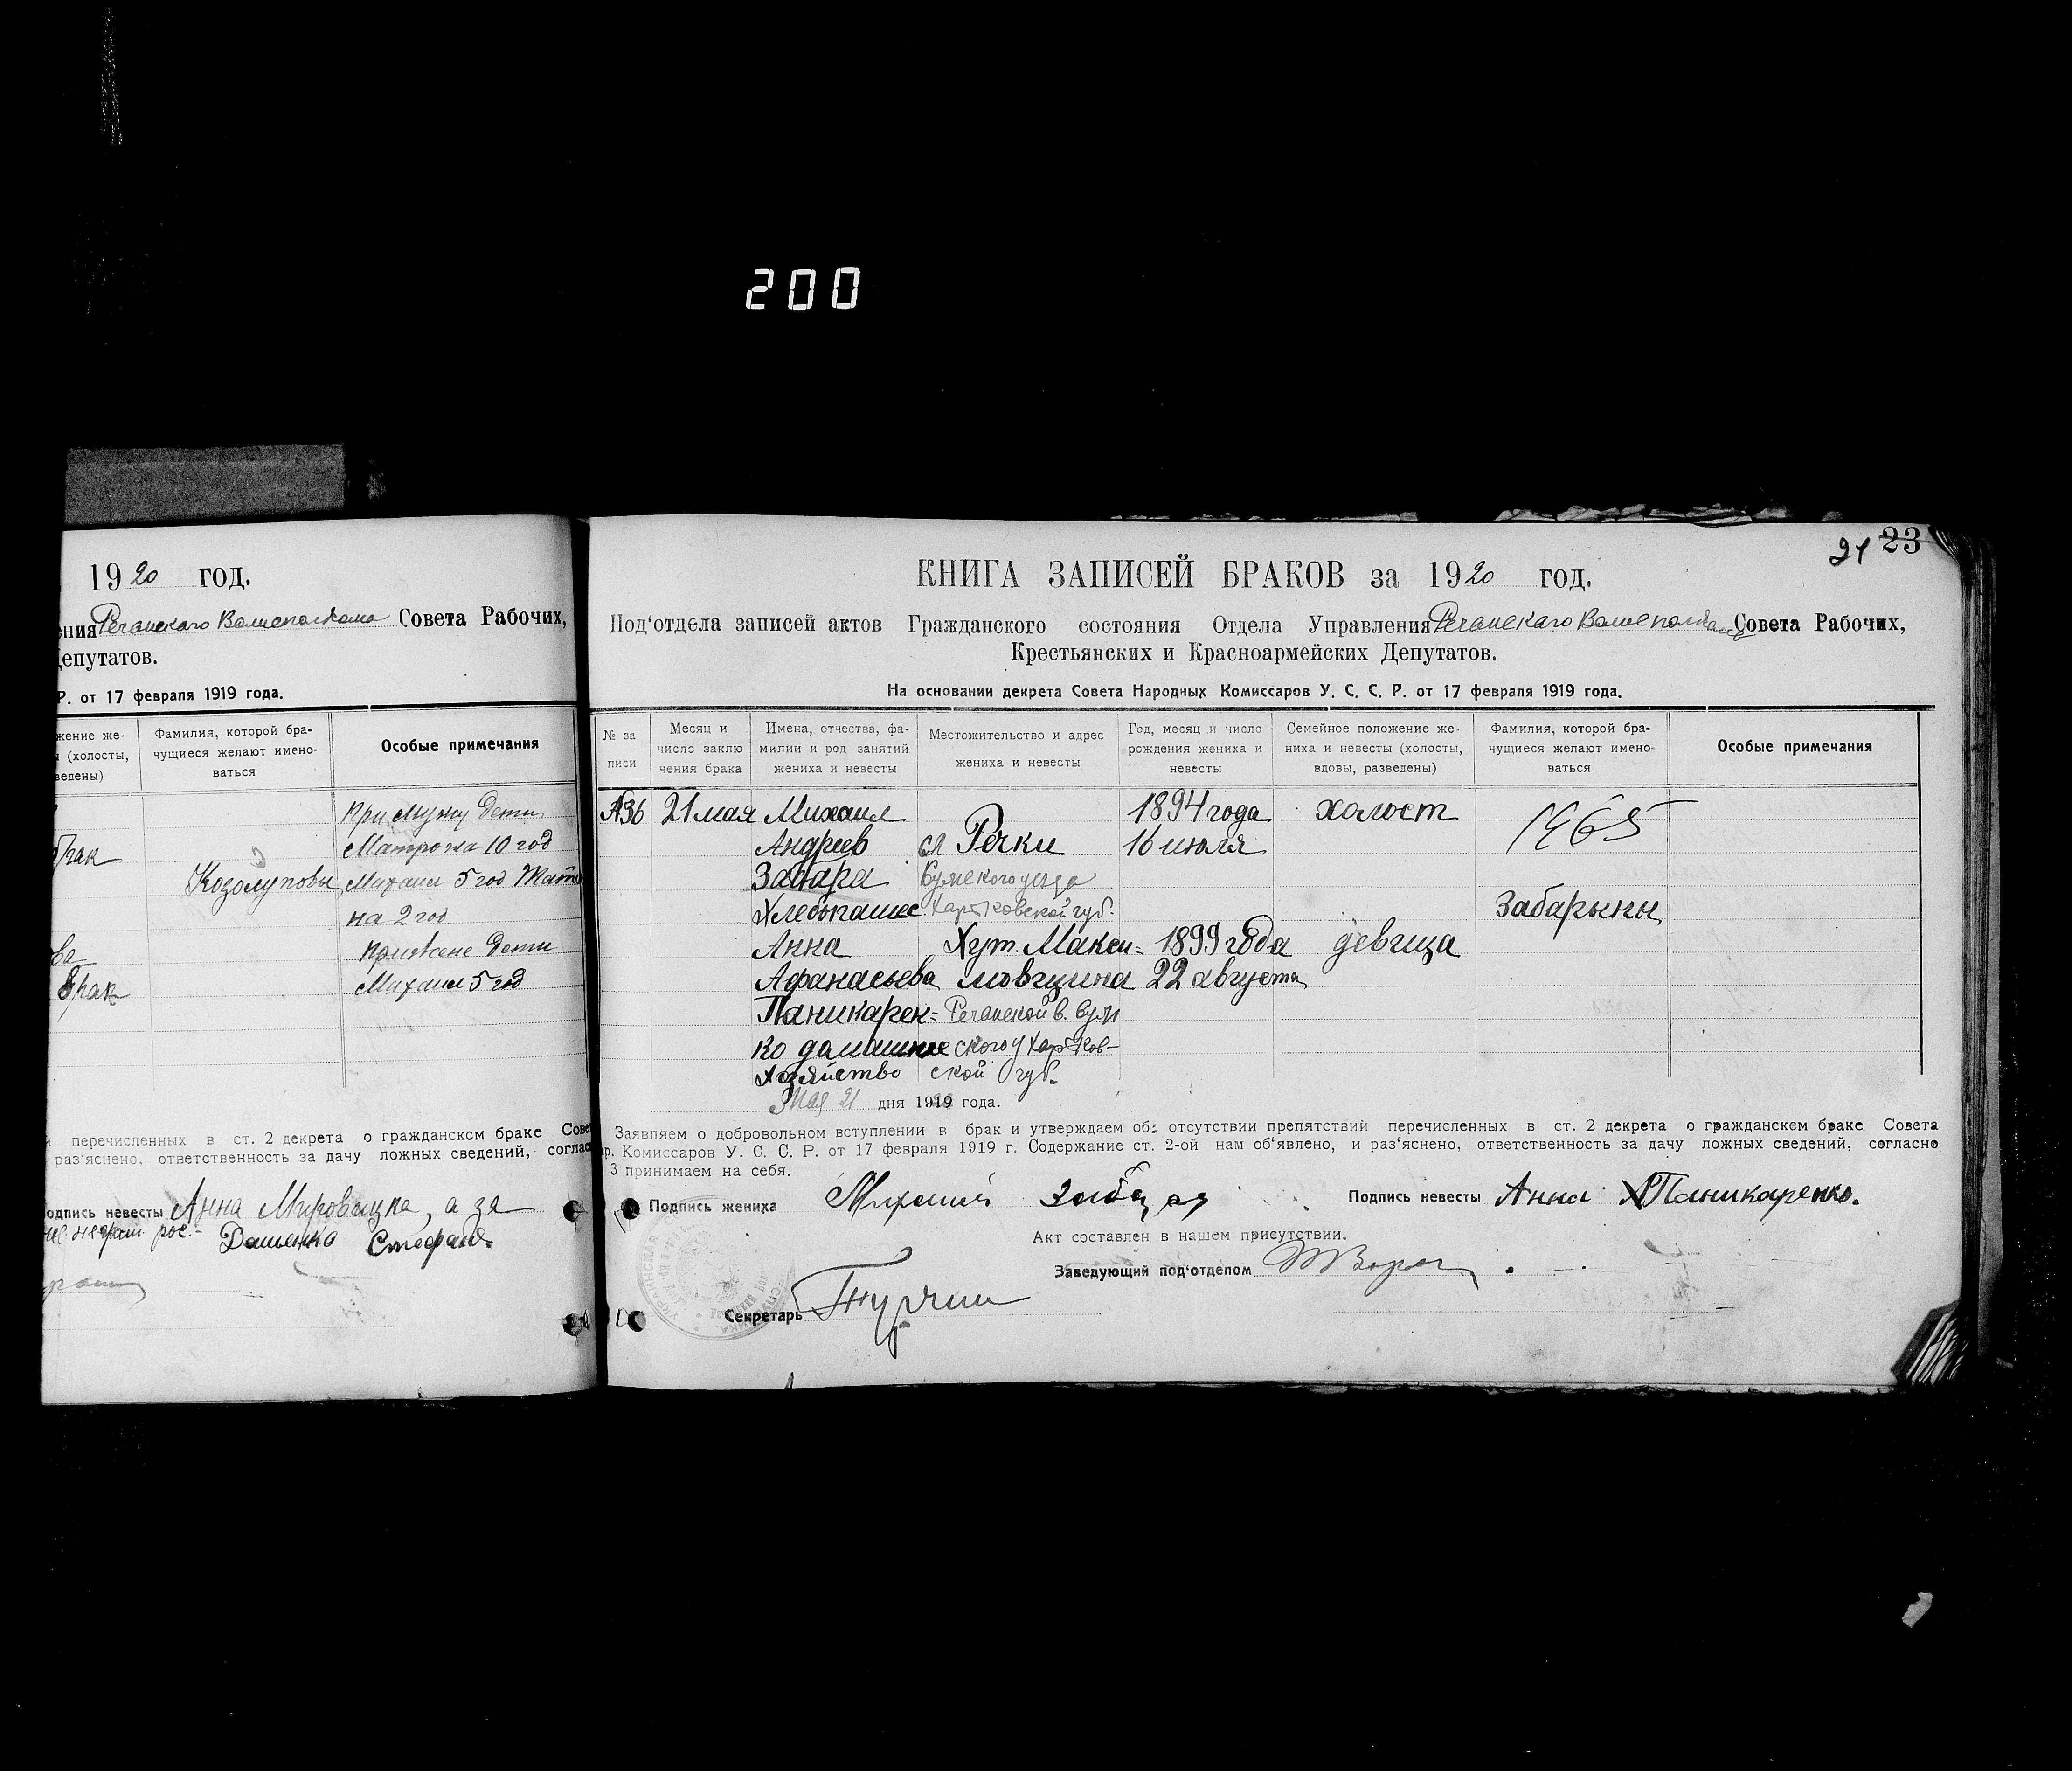 200
19 20 год.
Речанскаго Волисполкома Совета Рабочих,
Депутатов.
Р. от 17 февраля 1919 года.
жение же-
(холосты,
ведены)
Фамилия, которой бра-
чущиеся желают имено-
ваться
Особые примечания
при мужу дети
Матрона 10 год
Козолуповы
Михаил 5 год
на 2 год
при жене дети
брак
Михаил 5 год
перечисленных в ст. 2 декрета о гражданском браке Совета
раз'яснено, ответственность за дачу ложных сведений, соглас
одпись невесты Анна
Стефан
21 23
КНИГА ЗАПИСЕЙ БРАКОВ за 19 20 год.
Под'отдела записей актов Гражданского состояния Отдела Управления Речанскаго Волисполкома Совета Рабочих,
Крестьянских и Красноармейских Депутатов.
На основании декрета Совета Народных Комиссаров У. С. С. Р. от 17 февраля 1919 года.
№ за
писи
Месяц и
число заклю
чения брака
Имена, отчества, фа-
милии и род занятий
жениха и невесты
Местожительство и адрес
жениха и невесты
Год, месяц и число
рождения жениха и
невесты
Семейное положение же-
ниха и невесты (холосты,
вдовы, разведены)
Фамилия, которой бра-
чущиеся желают имено-
ваться
Особые примечания
№36 21 мая Михаил 1894 года холост
Андреев сл Речки 16 июля 1465
Забара Сумского уезда
Хлебопашес Харьковской губ. Забарыны
Анна Хут. Макси- 1899 года девица
Афанасьева мовщина 22 августа
Паникарен- Речанской в. Сум
ко домашнее ского у Харьков-
хозяйство ской губ.
Мая 21 дня 1919 года.
Заявляем о добровольном вступлении в брак и утверждаем об отсутствии препятствий перечисленных в ст. 2 декрета о гражданском браке Совета
р. Комиссаров У. С. С. Р. от 17 февраля 1919 г. Содержание ст. 2-ой нам об'явлено, и раз'яснено, ответственность за дачу ложных сведений, согласно
3 принимаем на себя.
Подпись жениха Михаил Забара Подпись невесты Анна Паникаренко.
Акт составлен в нашем присутствии.
Заведующий под'отделом
Секретарь